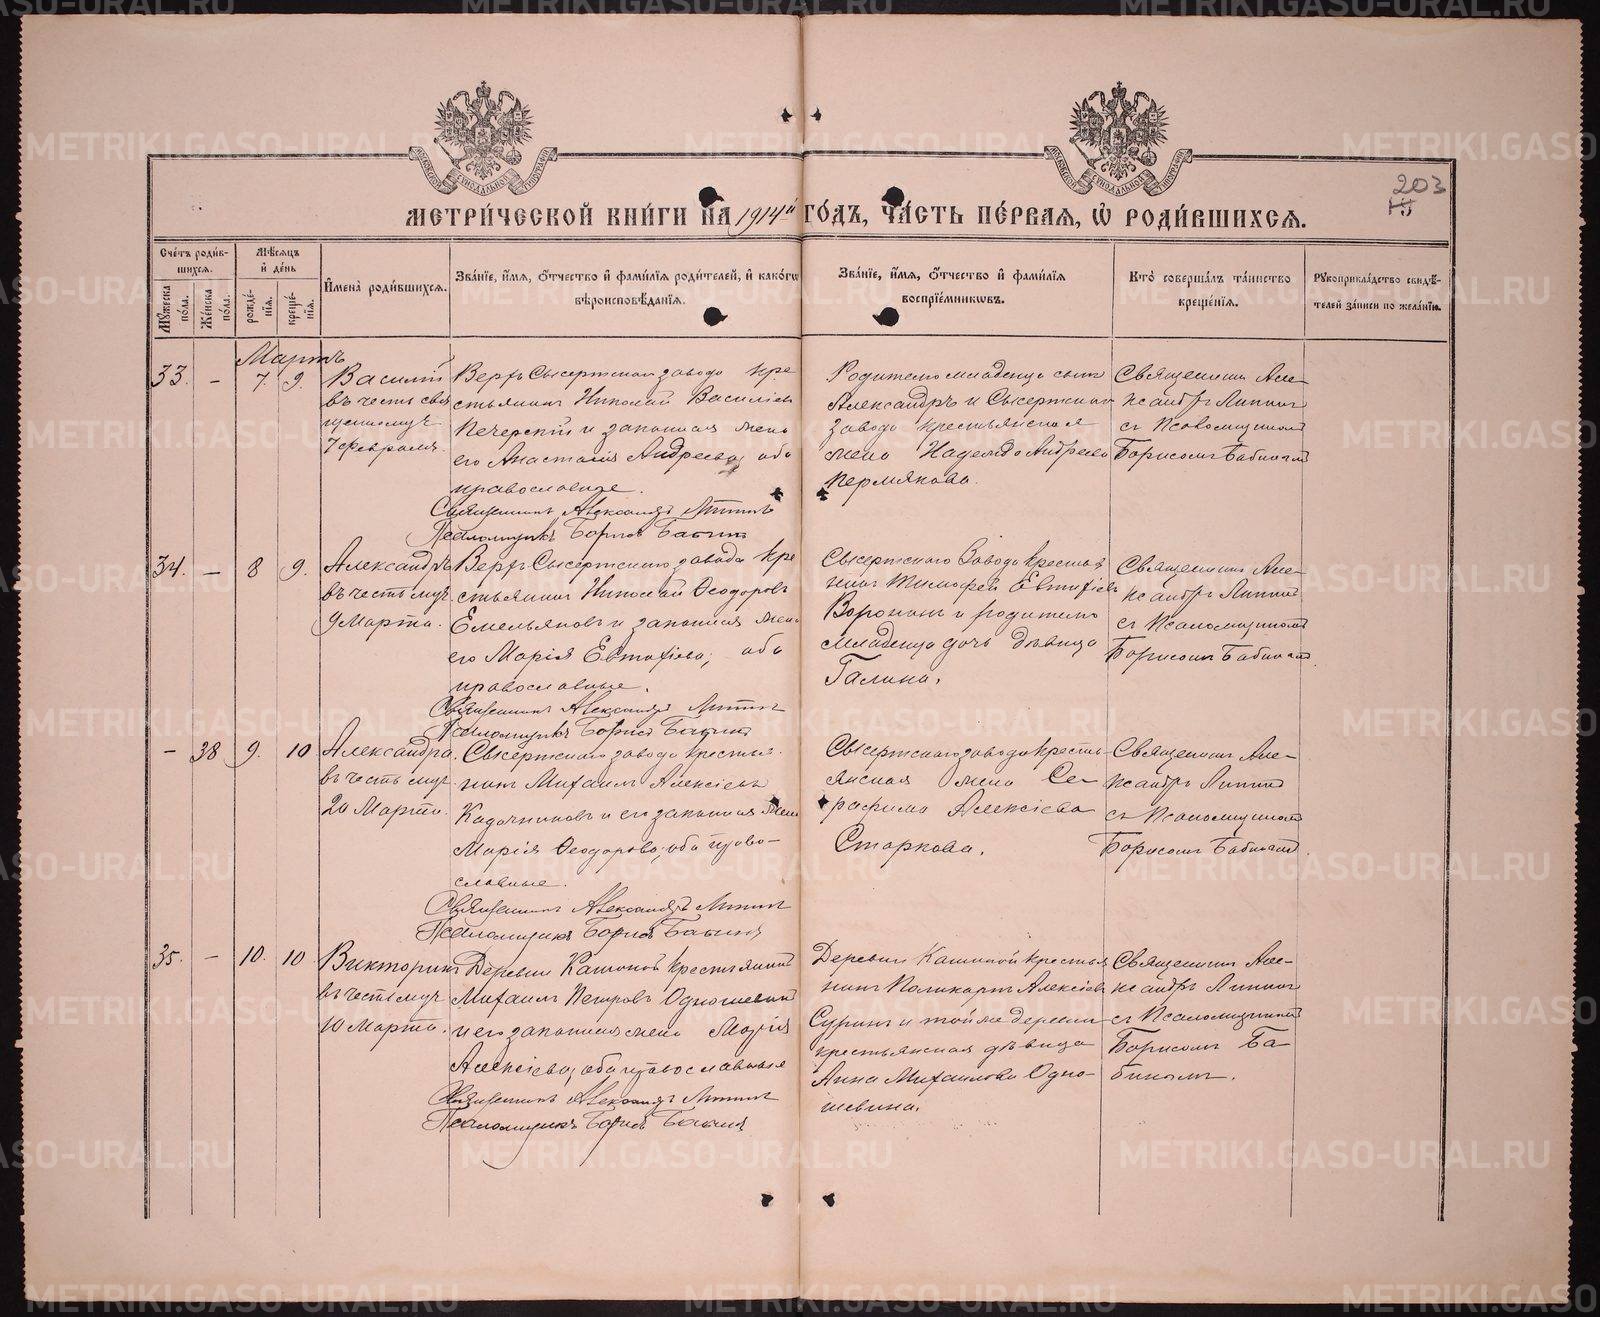 203
МЕТРИ́ЧЕСКОЙ КНИ́ГИ НА 1914й ГО́ДЪ, ЧА́СТЬ ПЕ́РВАЯ, Ѡ РОДИ́ВШИХСЯ.
Сче́тъ роди́вшихся.
Му́жеска по́ла.
Же́нска по́ла.
Мѣ́сяцъ и де́нь
рожде́нія.
креще́нія.
Имена̀ роди́вшихся.
Зва́ніе, и́мя, о́тчество и фами́лія роди́телей, и како́гѡ
вѣроисповѣ́данія.
Зва́ніе, и́мя, о́тчество и фами́лія
воспріе́мниковъ.
Кто̀ соверша́лъ та́инство
креще́нія.
Рукоприкла́дство свидѣ́-
телей за́писи по жела́нію.
Мартъ
33. - 7. 9.
Василій
въ честь свя
щенномуч.
7 февраля.
Верхъ Сысертскаго завода кре
стьянинъ Николай Василіевъ
Печерскій и законная жена
его Анастасія Андреева, оба
православные.
Священникъ Александръ
Псаломщикъ Борисъ Бабинъ
Родителя младенца сынъ
Александръ и Сысертскаго
завода крестьянская
жена Надежда Андреева
Пермякова.
Священникъ Але-
ксандръ
съ Псаломщикомъ
Борисомъ Бабинымъ
34. - 8 9.
Александръ
въ честь муч.
9 Марта.
Верхъ Сысертскаго завода кре
стьянинъ Николай Ѳеодоровъ
Емельяновъ и законная жена
его Марія Евтифіева, оба
православные.
Священникъ Александръ
Псаломщикъ Борисъ Бабинъ
Сысертскаго Завода крестья
нинъ Тимофей Евтифіевъ
Воронинъ и родителя
младенца дочь дѣвица
Галина.
Священникъ Але-
ксандръ
съ Псаломщикомъ
Борисомъ Бабинымъ
- 38 9. 10
Александра.
въ честь муч.
20 Марта.
Сысертскаго завода крестья-
нинъ Михаилъ Алексіевъ
Кадочниковъ и его законная жена
Марія Ѳеодорова, оба право-
славные.
Священникъ Александръ
Псаломщикъ Борисъ Бабинъ
Сысертскаго завода кресть-
янская жена Се-
рафима Алексіева
Старкова.
Священникъ Але-
ксандръ
съ Псаломщикомъ
Борисомъ Бабинымъ.
35. - 10. 10
Викторинъ
въ честь муч.
10 Марта.
Деревни Кашиной крестьянинъ
Михаилъ Петровъ Одношевинъ
и его законная жена Марія
Алексіева, оба православные
Священникъ Александръ
Псаломщикъ Борисъ Бабинъ
Деревни Кашиной крестья
нинъ Поликарпъ Алексіевъ
Суринъ и той же деревни
крестьянская дѣвица
Анна Михаилова Одно-
шевина.
Священникъ Але-
ксандръ
съ Псаломщикомъ
Борисомъ Ба-
бинымъ.
METRIKI.GASO-URAL.RU